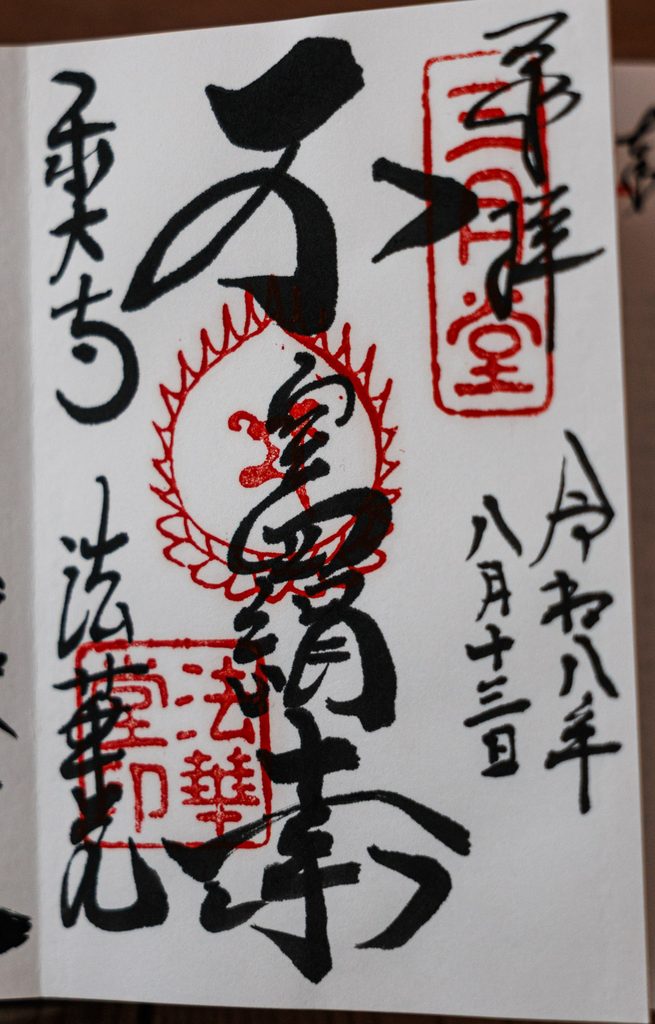 奉拝
三月堂
令和八年
八月十三日
不空羂索
東大寺 法華堂
法華堂印